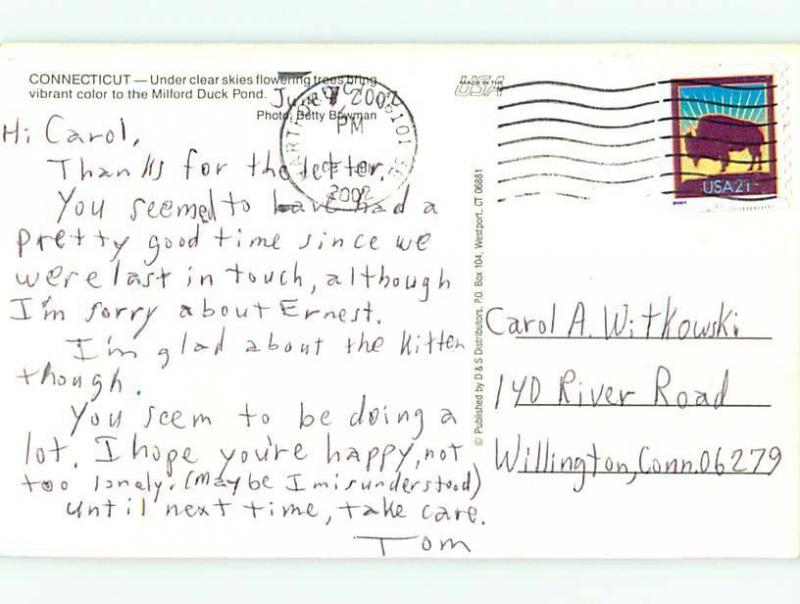 CONNECTICUT — Under clear skies flowering trees bring
vibrant color to the Milford Duck Pond.
Photo: Betty Bowman
June 7, 2002
Hi Carol,
Thanks for the letter.
You seemed to have had a
pretty good time since we
were last in touch, although
I'm sorry about Ernest.
I'm glad about the kitten
though.
You seem to be doing a
lot. I hope you're happy, not
too lonely. (maybe I misunderstood)
until next time, take care.
Tom
PM
2002
© Published by D & S Distributors, P.O. Box 104, Westport, CT 06881
MADE IN THE
USA
USA21
Carol A. Witkowski
140 River Road
Willington, Conn. 06279